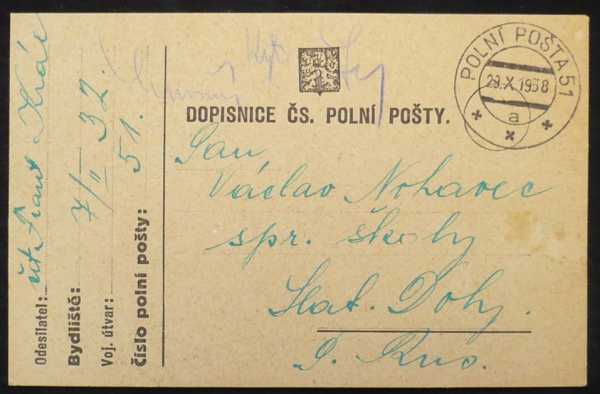 DOPISNICE ČS. POLNÍ POŠTY.
POLNÍ POŠTA 51
29.X.1938
a
Pan
Václav Nohavec
spr. školy
Slat. Doly.
P. Rus.
Odesílatel: Frant. Král
Bydliště: 7/II
Voj. útvar: 32.
Číslo polní pošty: 51.